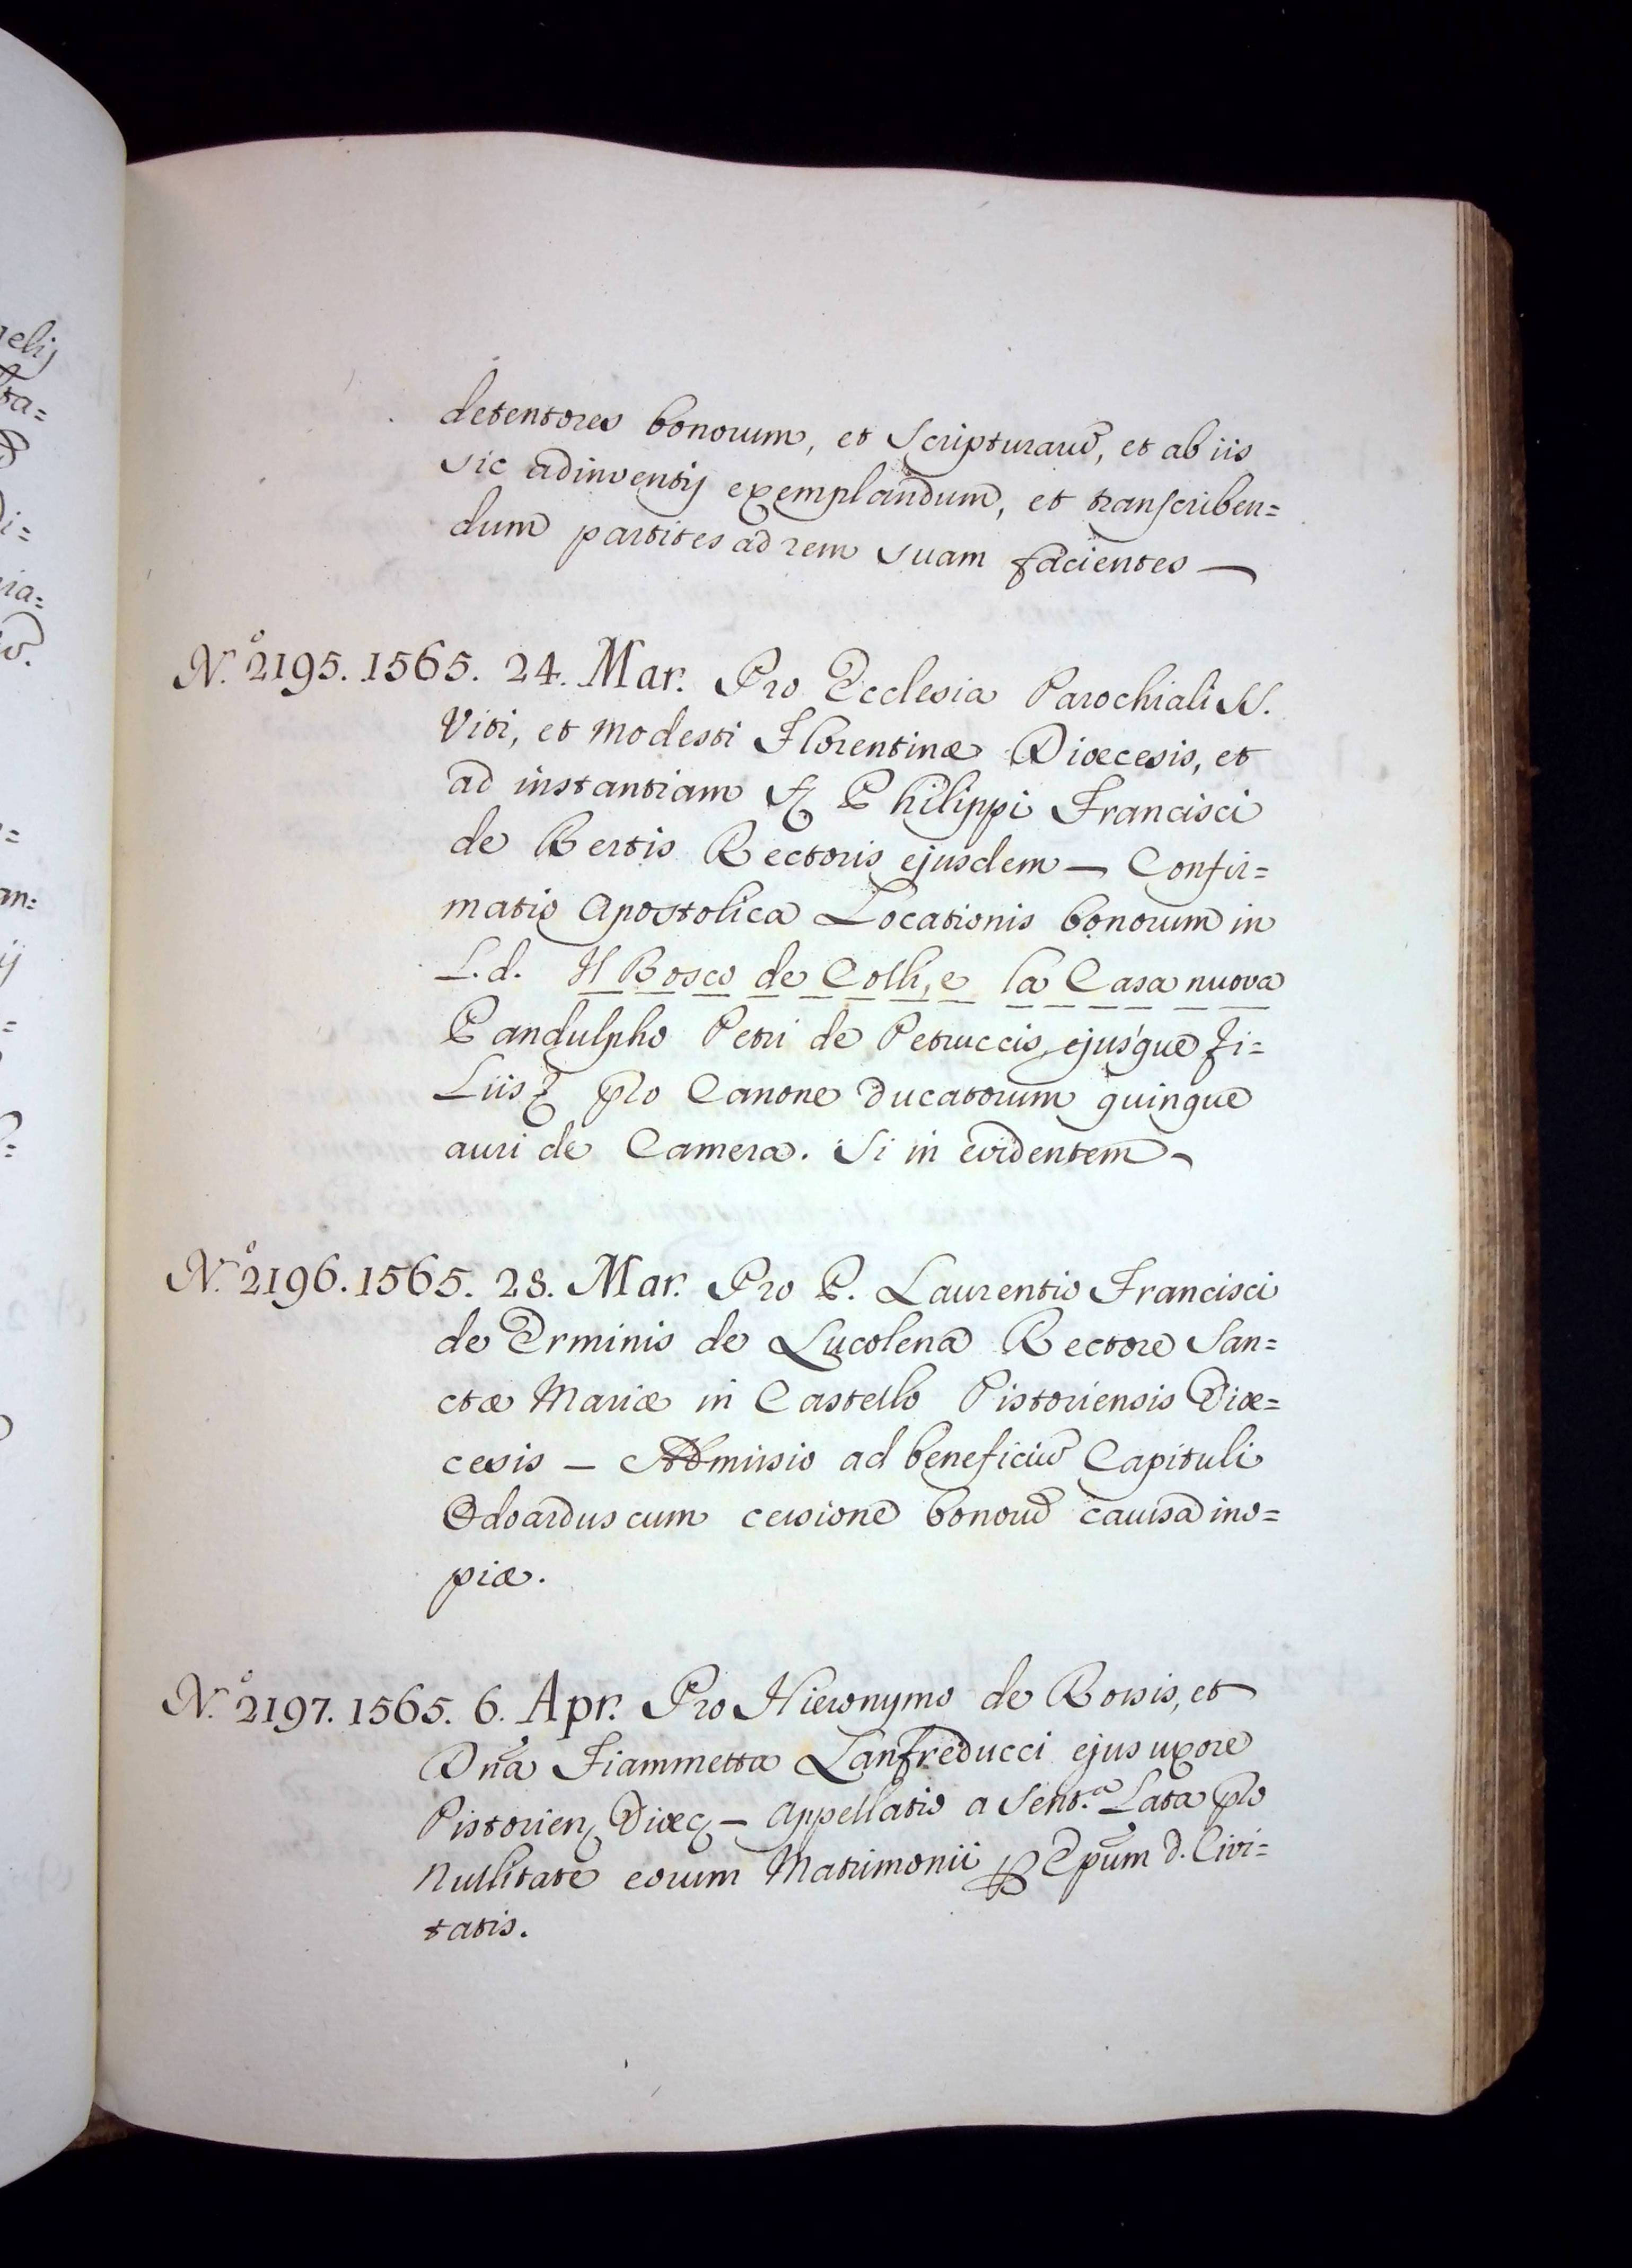 detentores bonorum, et Scripturarũ, et ab iis
sic adinventij exemplandum, et transcriben=
dum partites ad rem suam facientes —
N.º 2195. 1565. 24. Mar. Pro Ecclesia Parochiali SS.
Viti, et Modesti Florentinæ Diœcesis, et
ad instantiam Philippi Francisci
de Bertis Rectoris ejusdem — Confir=
matio Apostolica Locationis bonorum in
L. d. Il Bosco de Colli, e la Casa nuova
Pandulpho Petri de Petruccis, ejusque fi=
Liis pro Canone Ducatorum quinque
auri de Camera. Si in evidentem —
N.º 2196. 1565. 28. Mar. Pro P. Laurentio Francisci
de Erminis de Lucolena Rectore San=
ctæ Mariæ in Castello Pistoriensis Diœ=
cesis — Admissio ad beneficiũ Capituli
Odoardus cum cessione bonorũ caussa ino=
piæ.
N.º 2197. 1565. 6. Apr. Pro Hieronymo de Rossis, et
Dña Fiammetta Lanfreducci ejus uxore
Pistorien Diœc — Appellatio a Sent.ª Lata pro
Nullitate eorum Matrimonii Epũm d. Civi=
tatis.
elij
ta=
i=
ia=
=
m=
ij
=
=